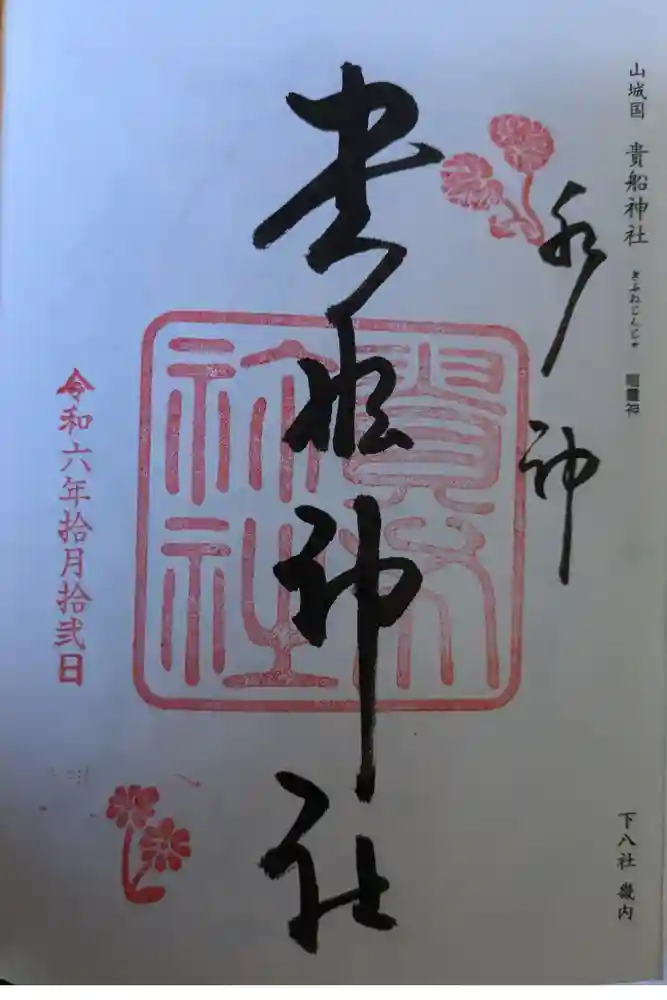 山城国 貴船神社 きふねじんじゃ
下八社 畿内
水神
貴船神社
令和六年拾月拾弐日